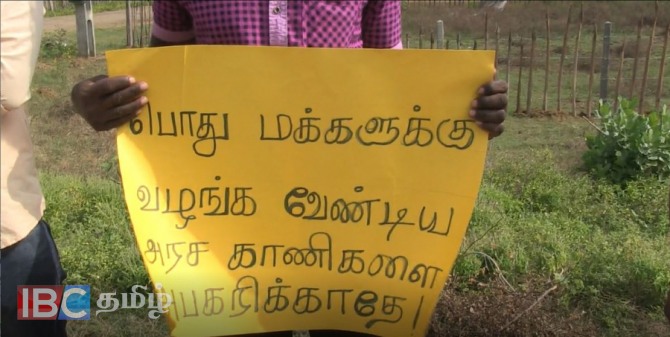 பொது மக்களுக்கு
வழங்க வேண்டிய
அரச காணிகளை
அபகரிக்காதே!
IBC தமிழ்